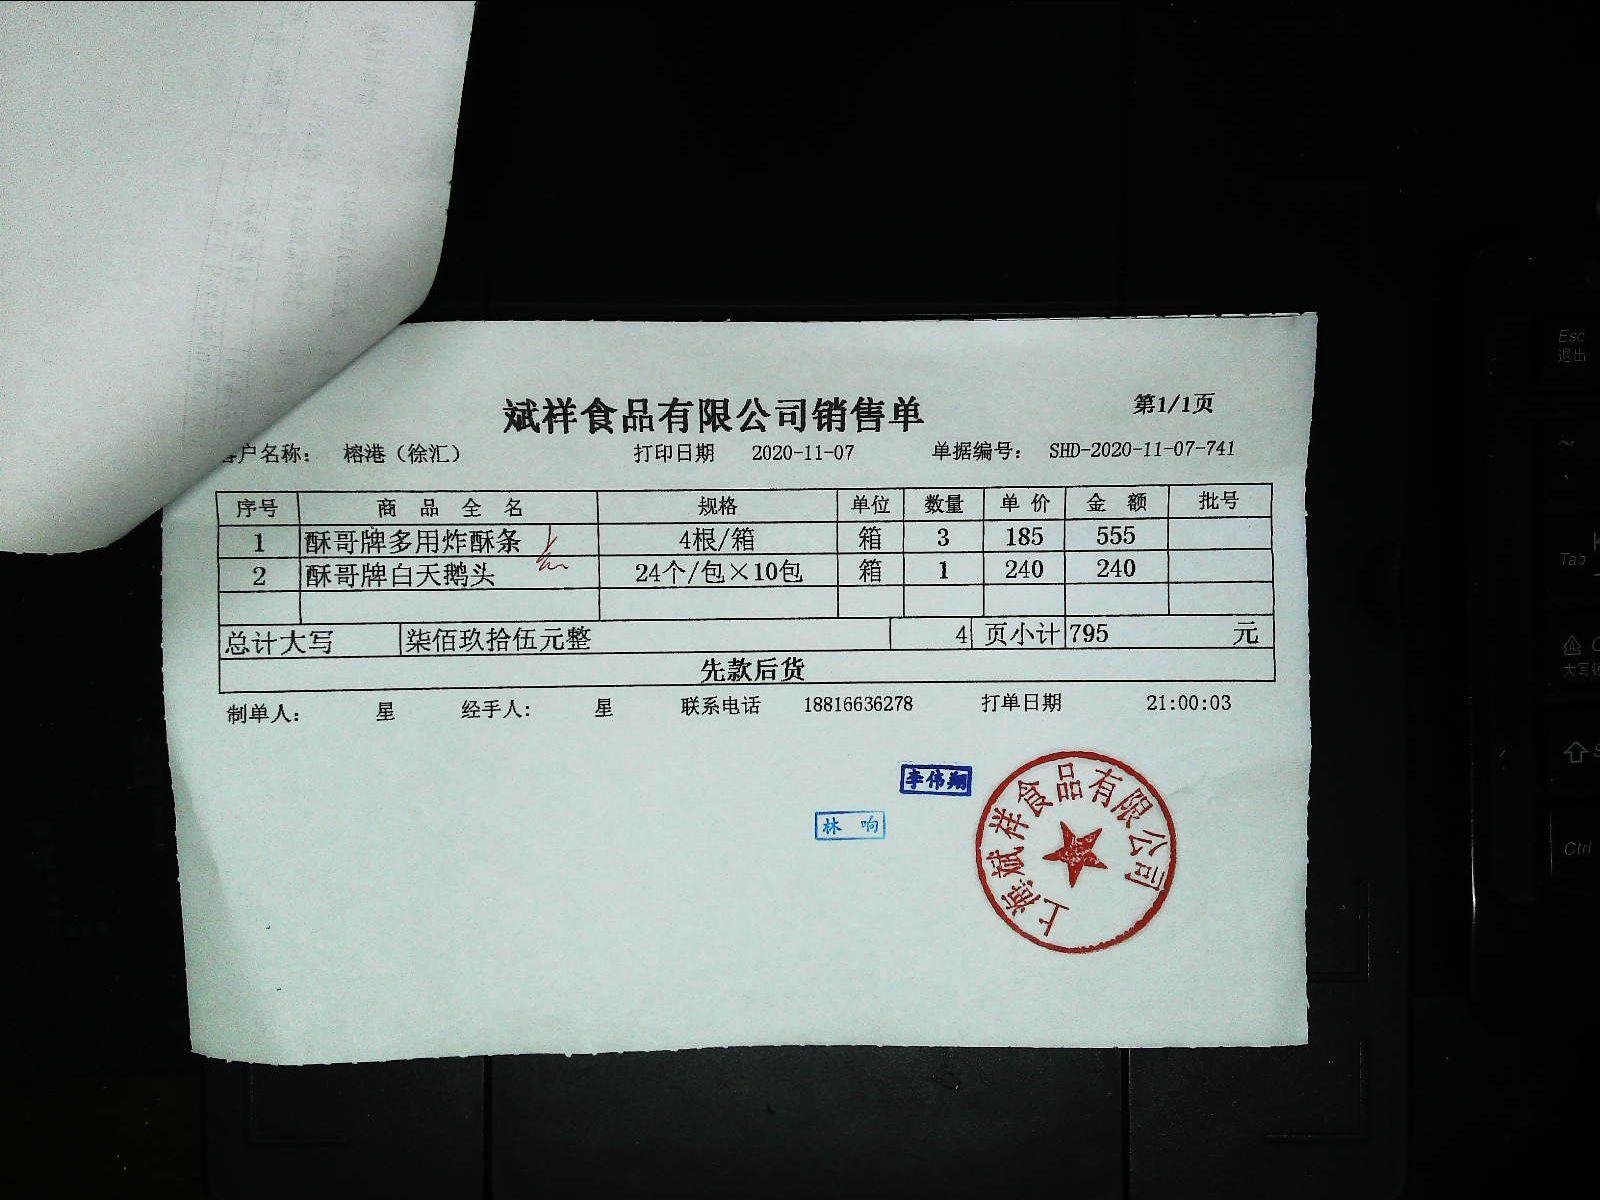 斌祥食品有限公司销售单
第1/1页
客户名称： 榕港（徐汇） 打印日期 2020-11-07 单据编号： SHD-2020-11-07-741
序号 商品全名 规格 单位 数量 单价 金额 批号
1 酥哥牌多用炸酥条 4根/箱 箱 3 185 555
2 酥哥牌白天鹅头 24个/包×10包 箱 1 240 240
总计大写 柒佰玖拾伍元整 4 页小计 795 元
先款后货
制单人： 星 经手人： 星 联系电话 18816636278 打单日期 21:00:03
李伟翔
林响
上海斌祥食品有限公司
Esc
退出
~
Tab
Ctrl